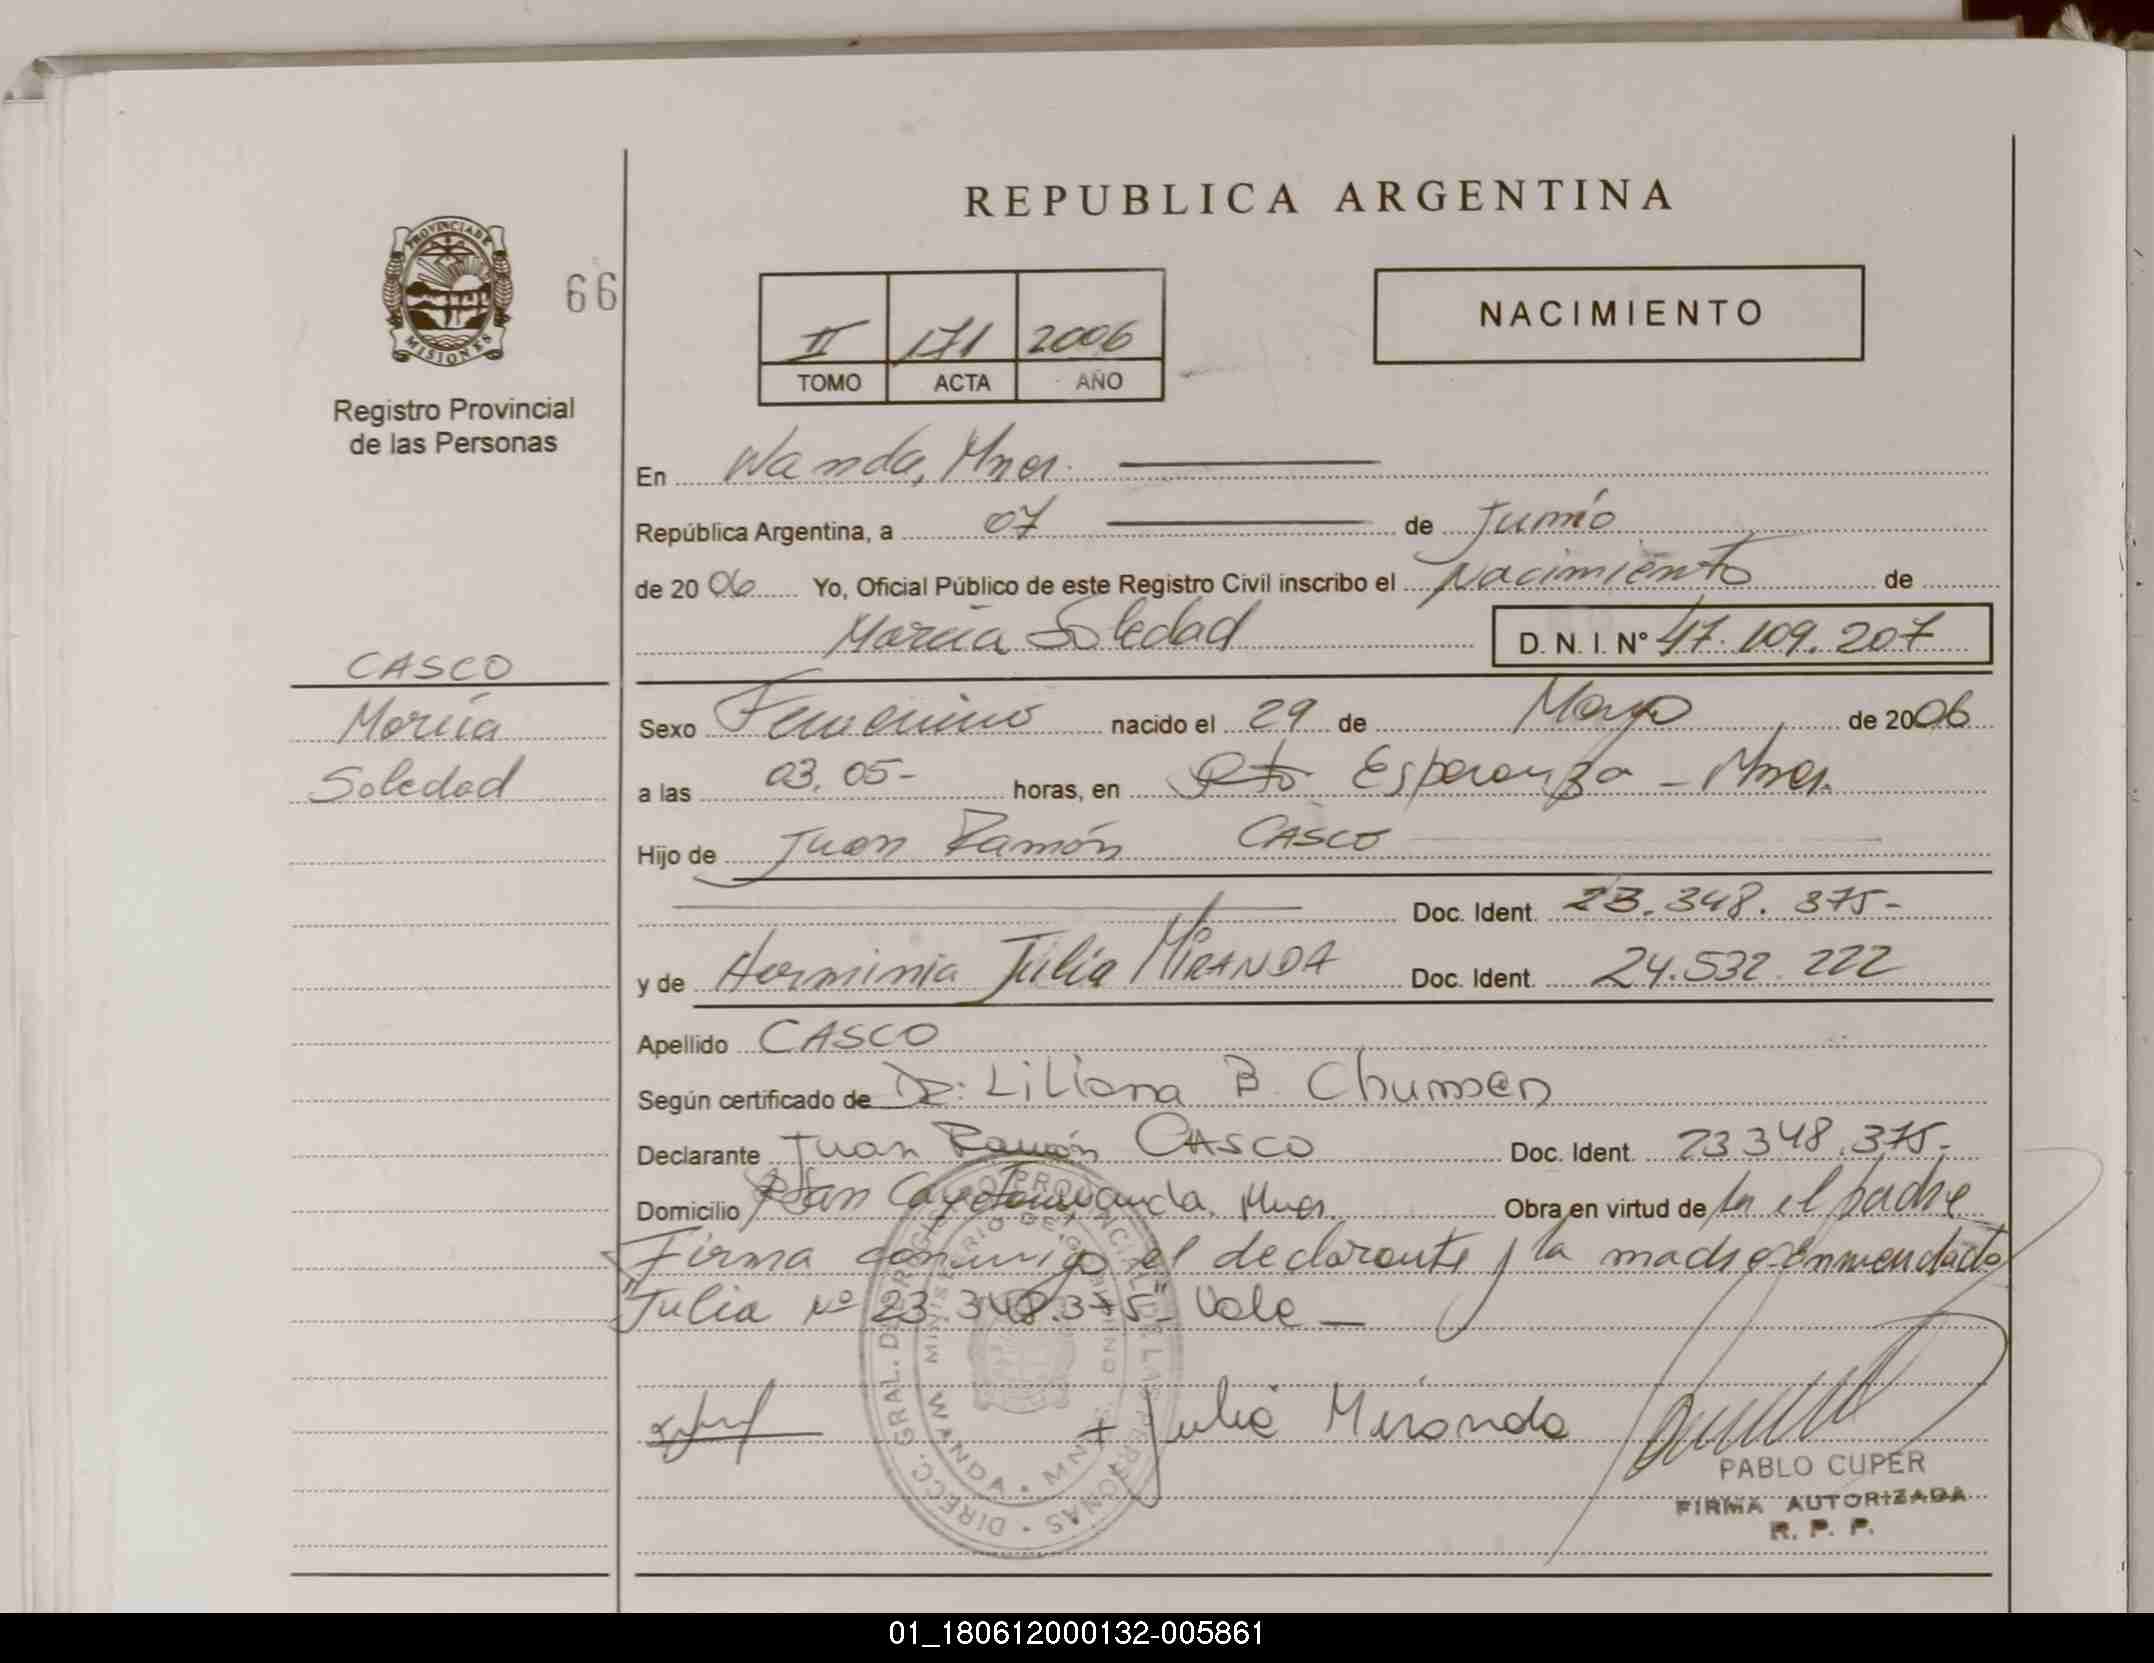 REPUBLICA ARGENTINA
PROVINCIA DE
MISIONES
66
Registro Provincial
de las Personas
II 171 2006
TOMO ACTA AÑO
NACIMIENTO
En Wanda, Mnes.
República Argentina, a 07 de Junio
de 2006 Yo, Oficial Público de este Registro Civil inscribo el Nacimiento de
María Soledad D. N. I. N° 47.109.207
CASCO
María
Soledad
Sexo Femenino nacido el 29 de Mayo de 2006
a las 03,05- horas, en Pto Esperanza - Mnes.
Hijo de Juan Ramón CASCO
Doc. Ident. 23.348.375-
y de Herminia Julia MIRANDA Doc. Ident. 24.532.222
Apellido CASCO
Según certificado de Dr: Liliana B. Chumsen
Declarante Juan Ramón CASCO Doc. Ident. 23348.375-
Domicilio Wanda, Mnes. Obra en virtud de el padre
Firma conmigo el declarante y la madre enmendado
"Julia Nº 23.348.375" Vale
Julia Miranda
DIRECC. GRAL. DE REGISTRO PROVINCIAL DE LAS PERSONAS
MINISTERIO DE GOBIERNO
WANDA • MNES
PABLO CUPER
FIRMA AUTORIZADA
R. P. P.
01_180612000132-005861